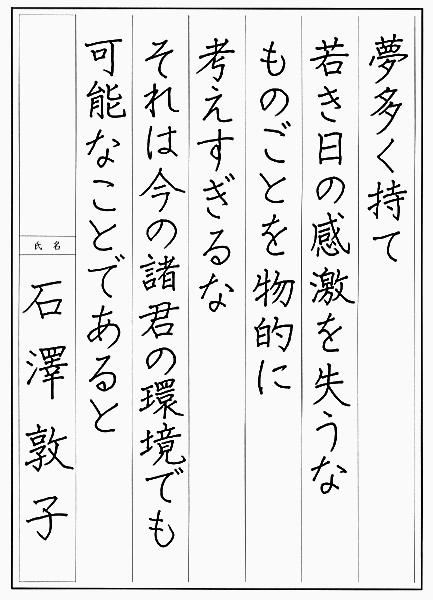 夢多く持て
若き日の感激を失うな
ものごとを物的に
考えすぎるな
それは今の諸君の環境でも
可能なことであると
氏名
石澤敦子